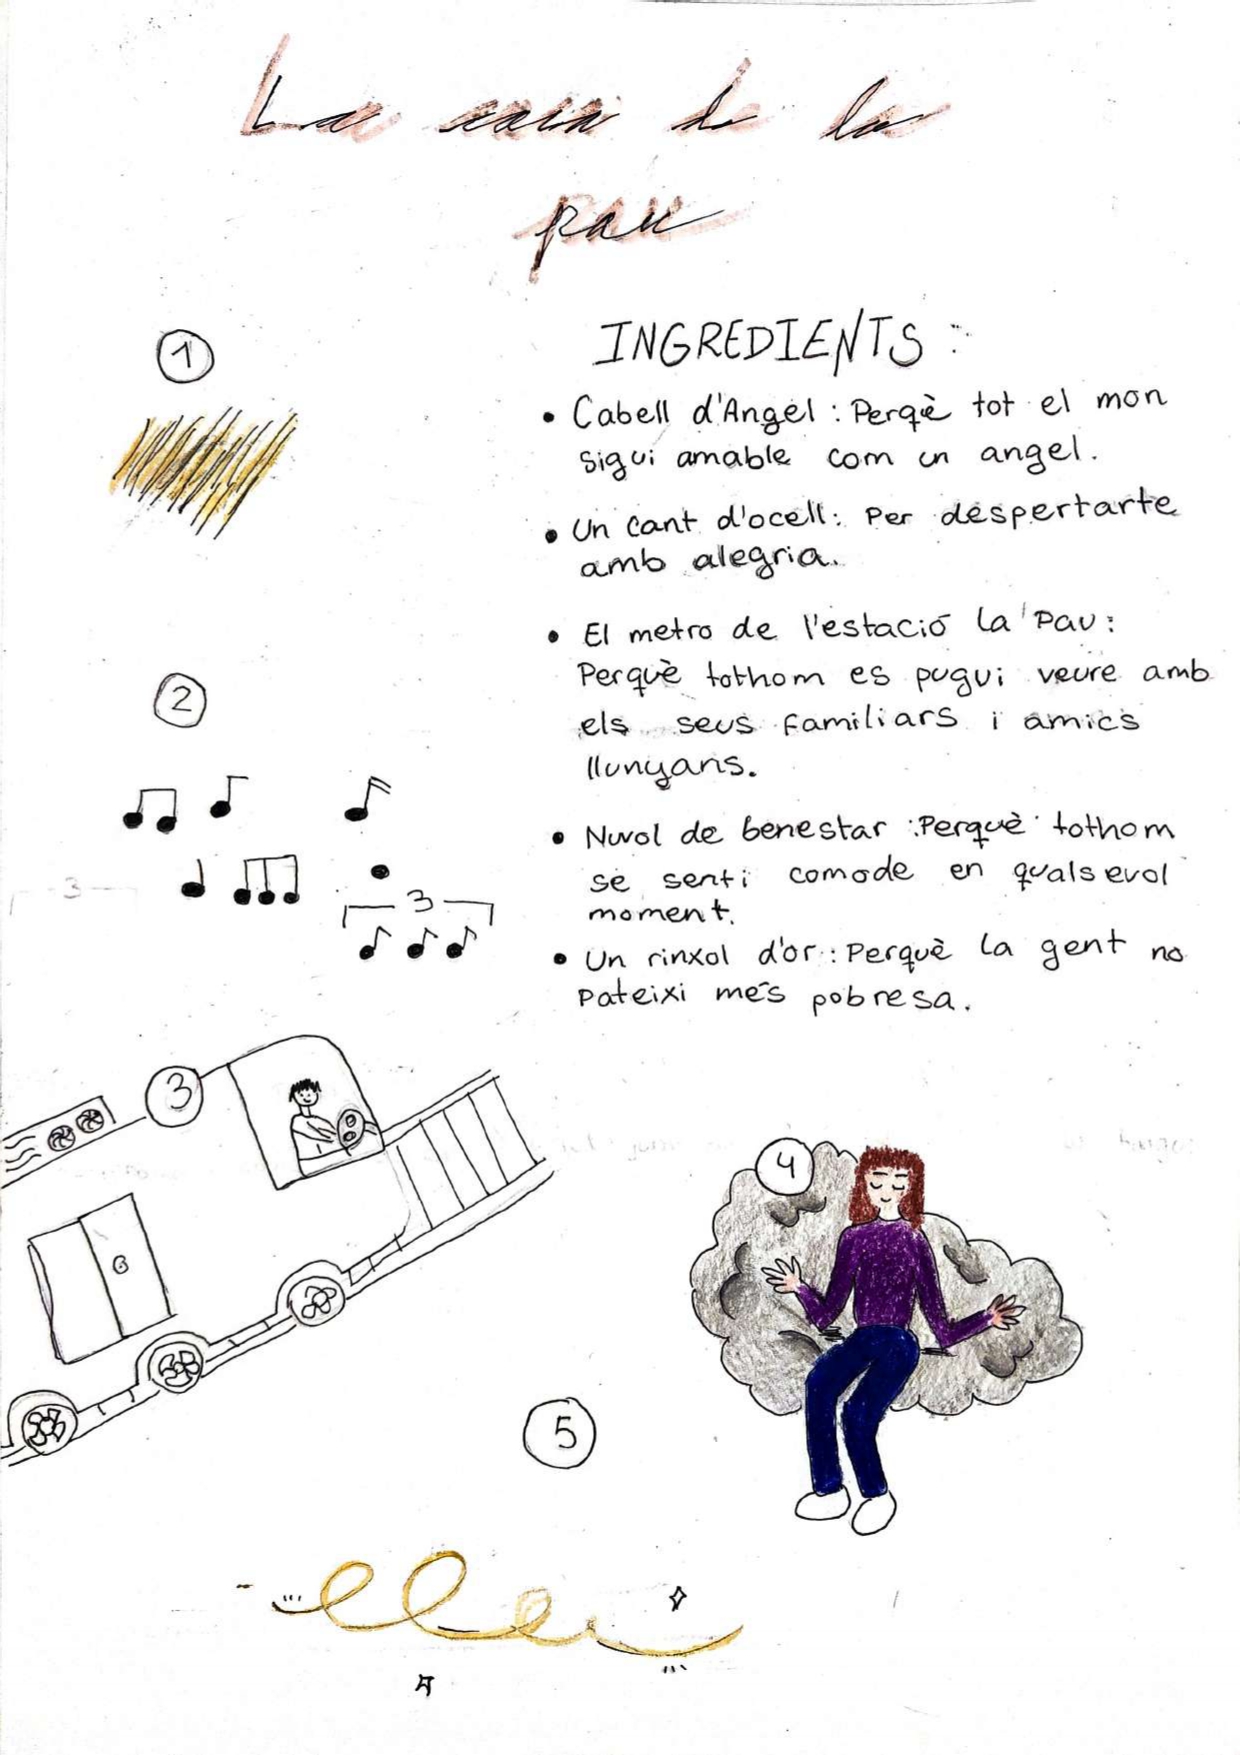 La casa de la
pau
INGREDIENTS:
1
• Cabell d'Angel: Perquè tot el mon
sigui amable com un angel.
• Un cant d'ocell: Per despertarte
amb alegria.
• El metro de l'estació la Pau:
Perquè tothom es pugui veure amb
els seus familiars i amics
llunyans.
2
• Nuvol de benestar: Perquè tothom
se senti comode en qualsevol
moment.
• Un rinxol d'or: Perquè la gent no
pateixi més pobresa.
3
3
4
5